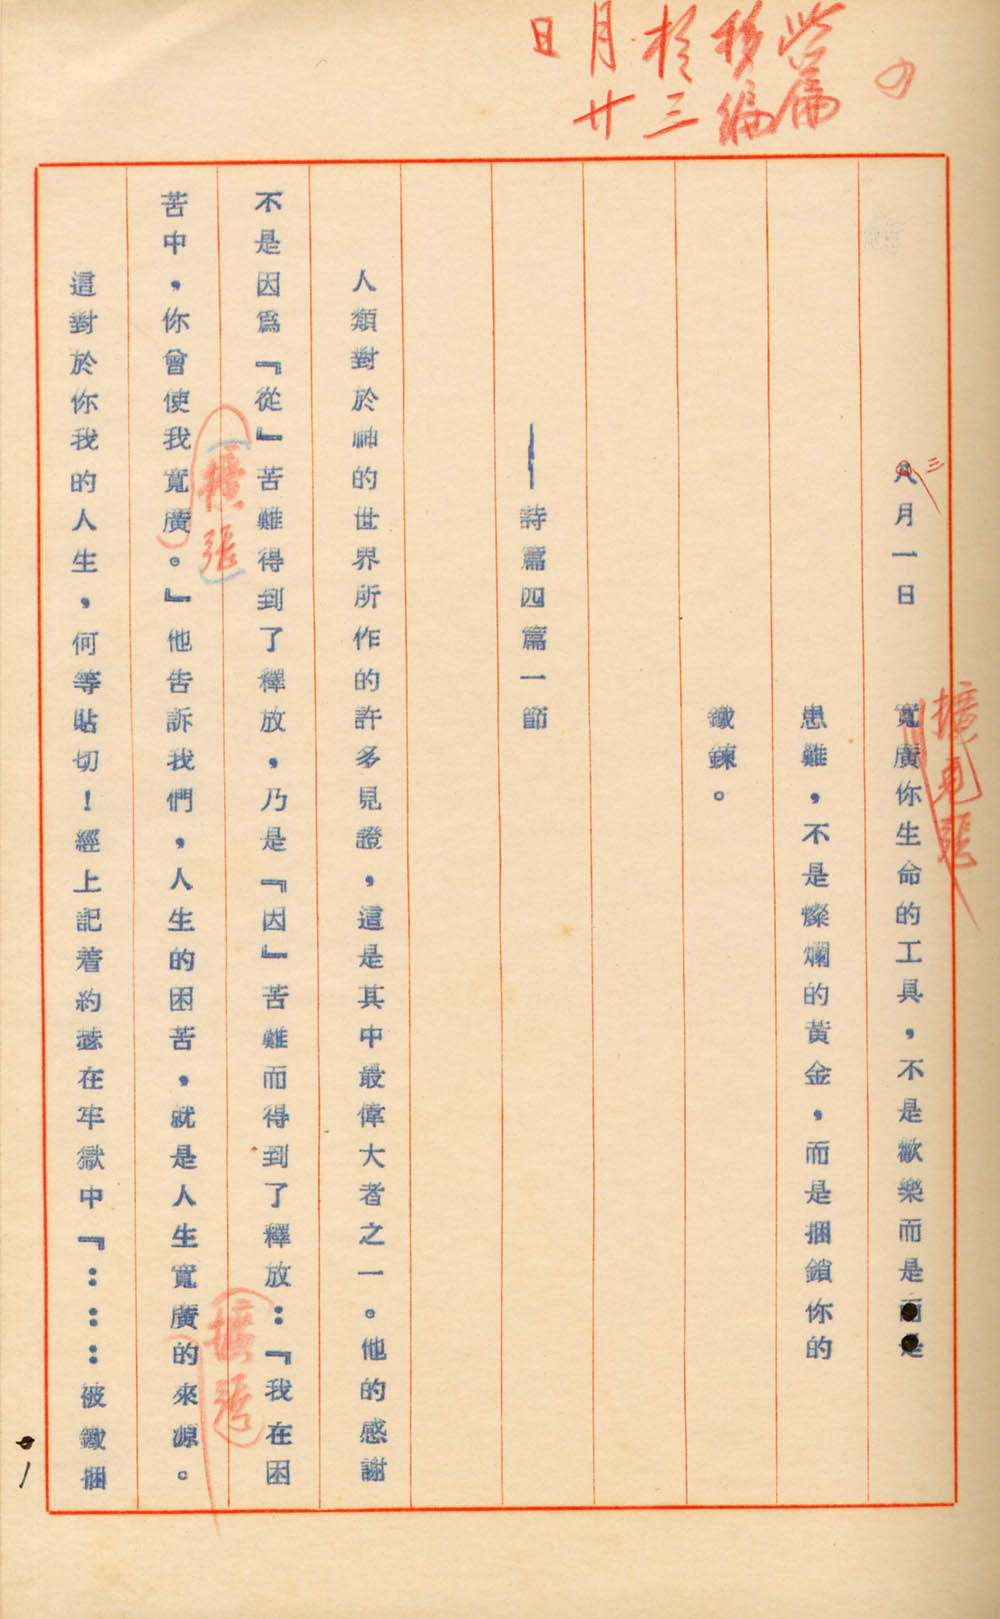 此篇
移編
於三
月廿
日
三
八月一日　寬廣你生命的工具，不是歡樂而是而是
擴充
患難，不是燦爛的黃金，而是捆鎖你的
鐵鍊。
—詩篇四篇一節
人類對於神的世界所作的許多見證，這是其中最偉大者之一。他的感謝
不是因爲『從』苦難得到了釋放，乃是『因』苦難而得到了釋放：『我在困
擴張
苦中，你曾使我寬廣。』他告訴我們，人生的困苦，就是人生寬廣的來源。
擴張
這對於你我的人生，何等貼切！經上記着約瑟在牢獄中『：：：被鐵捆